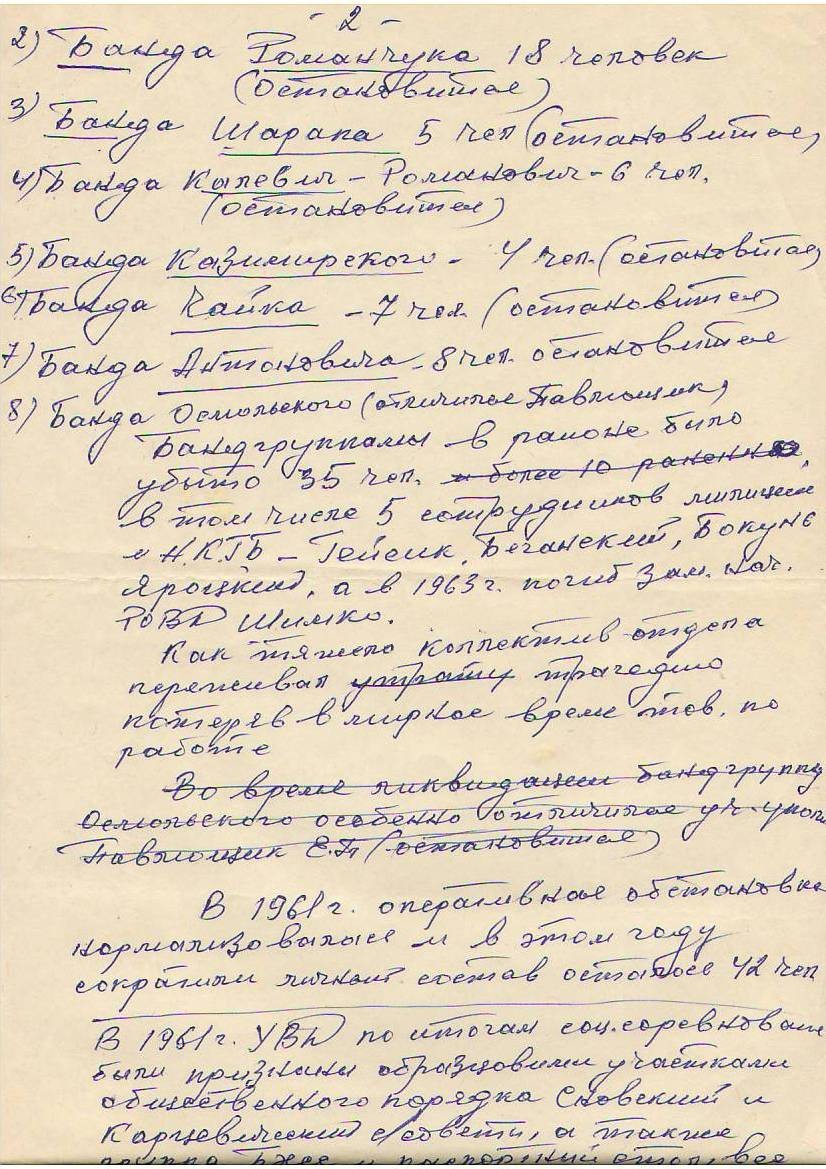 - 2 -
2) Банда Романчука 18 человек
(остановится)
3) Банда Шарапа 5 чел (остановится)
4) Банда Кылевич - Романович - 6 чел.
(остановится)
5) Банда Казимирского - 4 чел. (остановится)
6) Банда Чайка - 7 чел. (остановится)
7) Банда Антоновича - 8 чел. остановится
8) Банда Осмольского (отличился Павлющик)
Бандгруппами в районе было
убыто 35 чел. и более 10 раненно,
в том числе 5 сотрудников милиции
и Н.К.ГБ - Гейсик, Беганский, Бокуне
Яроцкий, а в 1963 г. погиб зам. нач.
РОВД Шимко.
Как тяжело коллектив отдела
переживал утрату трагедию
потеряв в мирное время тов. по
работе
Во время ликвидации бандгруппы
Осмольского особенно отличился уч. упол
Павлющик Е.П (остановится)
В 1961 г. оперативная обстановка
нормализовалась и в этом году
сократили личный состав осталось 42 чел
В 1961 г. УВД по итогам соц. соревнования
были признаны образцовыми участками
общественного порядка Сновский и
Карцевический с/советы, а также
группа БХСС и паспортный стол все